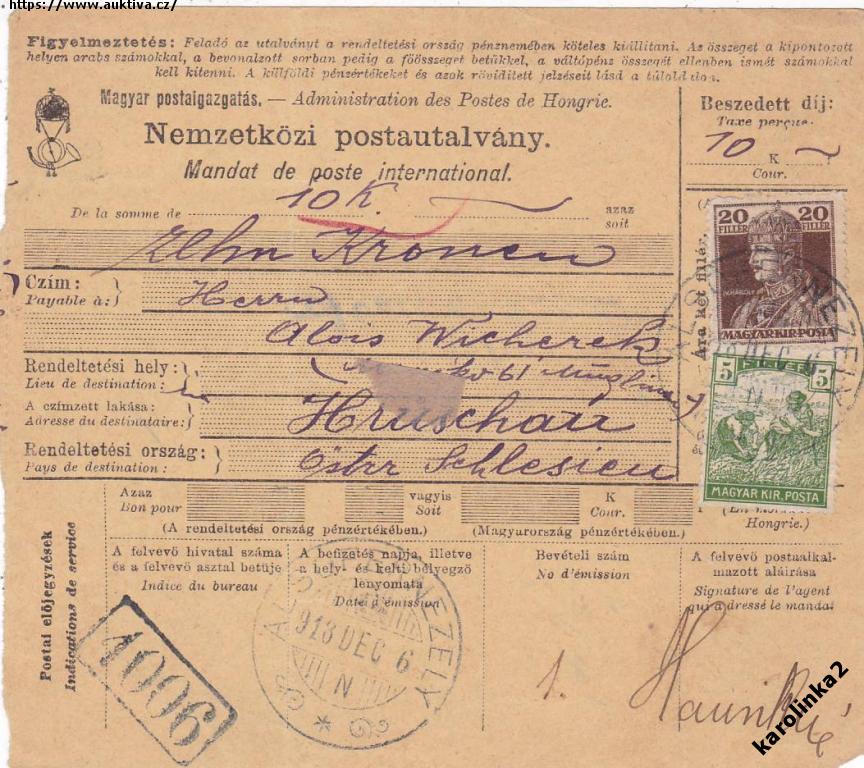 https://www.auktiva.cz/
Figyelmeztetés: Feladó az utalványt a rendeltetési ország pénznemében köteles kiállítani. Az összeget a kipontozott
helyen arabs számokkal, a bevonalzott sorban pedig a főösszeget betűkkel, a váltópénz összegét ellenben ismét számokkal
kell kitenni. A külföldi pénzértékeket és azok rövidített jelzéseit lásd a túloldalon.
Magyar postaigazgatás. — Administration des Postes de Hongrie.
Nemzetközi postautalvány.
Mandat de poste international.
Beszedett díj:
Taxe perçue.
10 K
Cour.
De la somme de 10 K. azaz
soit
Zehn Kronen
Czím:
Payable à:
Herrn
Alois Wicherek
Rendeltetési hely:
Lieu de destination:
61
A czímzett lakása:
Adresse du destinataire:
Hruschau
Rendeltetési ország:
Pays de destination:
Östrr Schlesien
Ára két fillér.
20 20
FILLÉR FILLÉR
MAGYAR KIR. POSTA
5 FILLÉR 5
MAGYAR KIR. POSTA
Azaz
Bon pour
vagyis
Soit
K
Cour.
Hongrie.)
(A rendeltetési ország pénzértékében.) (Magyarország pénzértékében.)
Postai előjegyzések
Indications de service
A felvevő hivatal száma
és a felvevő asztal betűje
Indice du bureau
A befizetés napja, illetve
a hely- és kelti bélyegző
lenyomata
Date d'émission
Bevételi szám
No d'émission
A felvevő postaalkal-
mazott aláírása
Signature de l'agent
qui a dressé le mandat
4006
NEZELY
918 DEC 6
N
1.
karolinka2